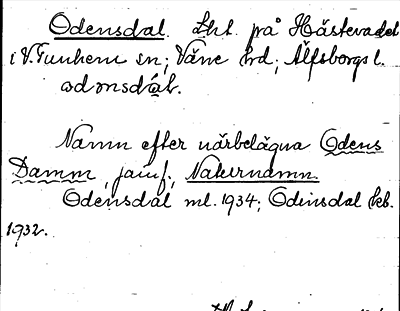 Odensdal. Lht. på Hästevadet
i V. Tunhem sn; Väne hd; Älfsborgs l.
odonsdál.
Namn efter närbelägna Odens
Damm, jämf. Naturnamn.
Odensdal ml. 1934; Odinsdal kb.
1932.